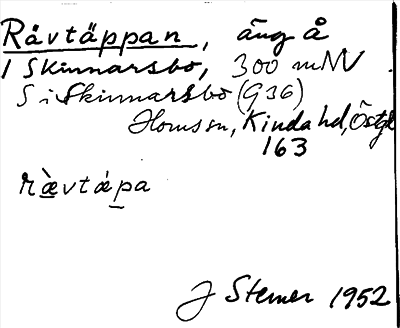 Rävtäppan, äng å
1 Skinnarsbo, 300 m NV
S i Skinnarsbo (G36)
Horns sn, Kinda hd, Östgl
163
ræ̀vtápa
J Stemer 1952